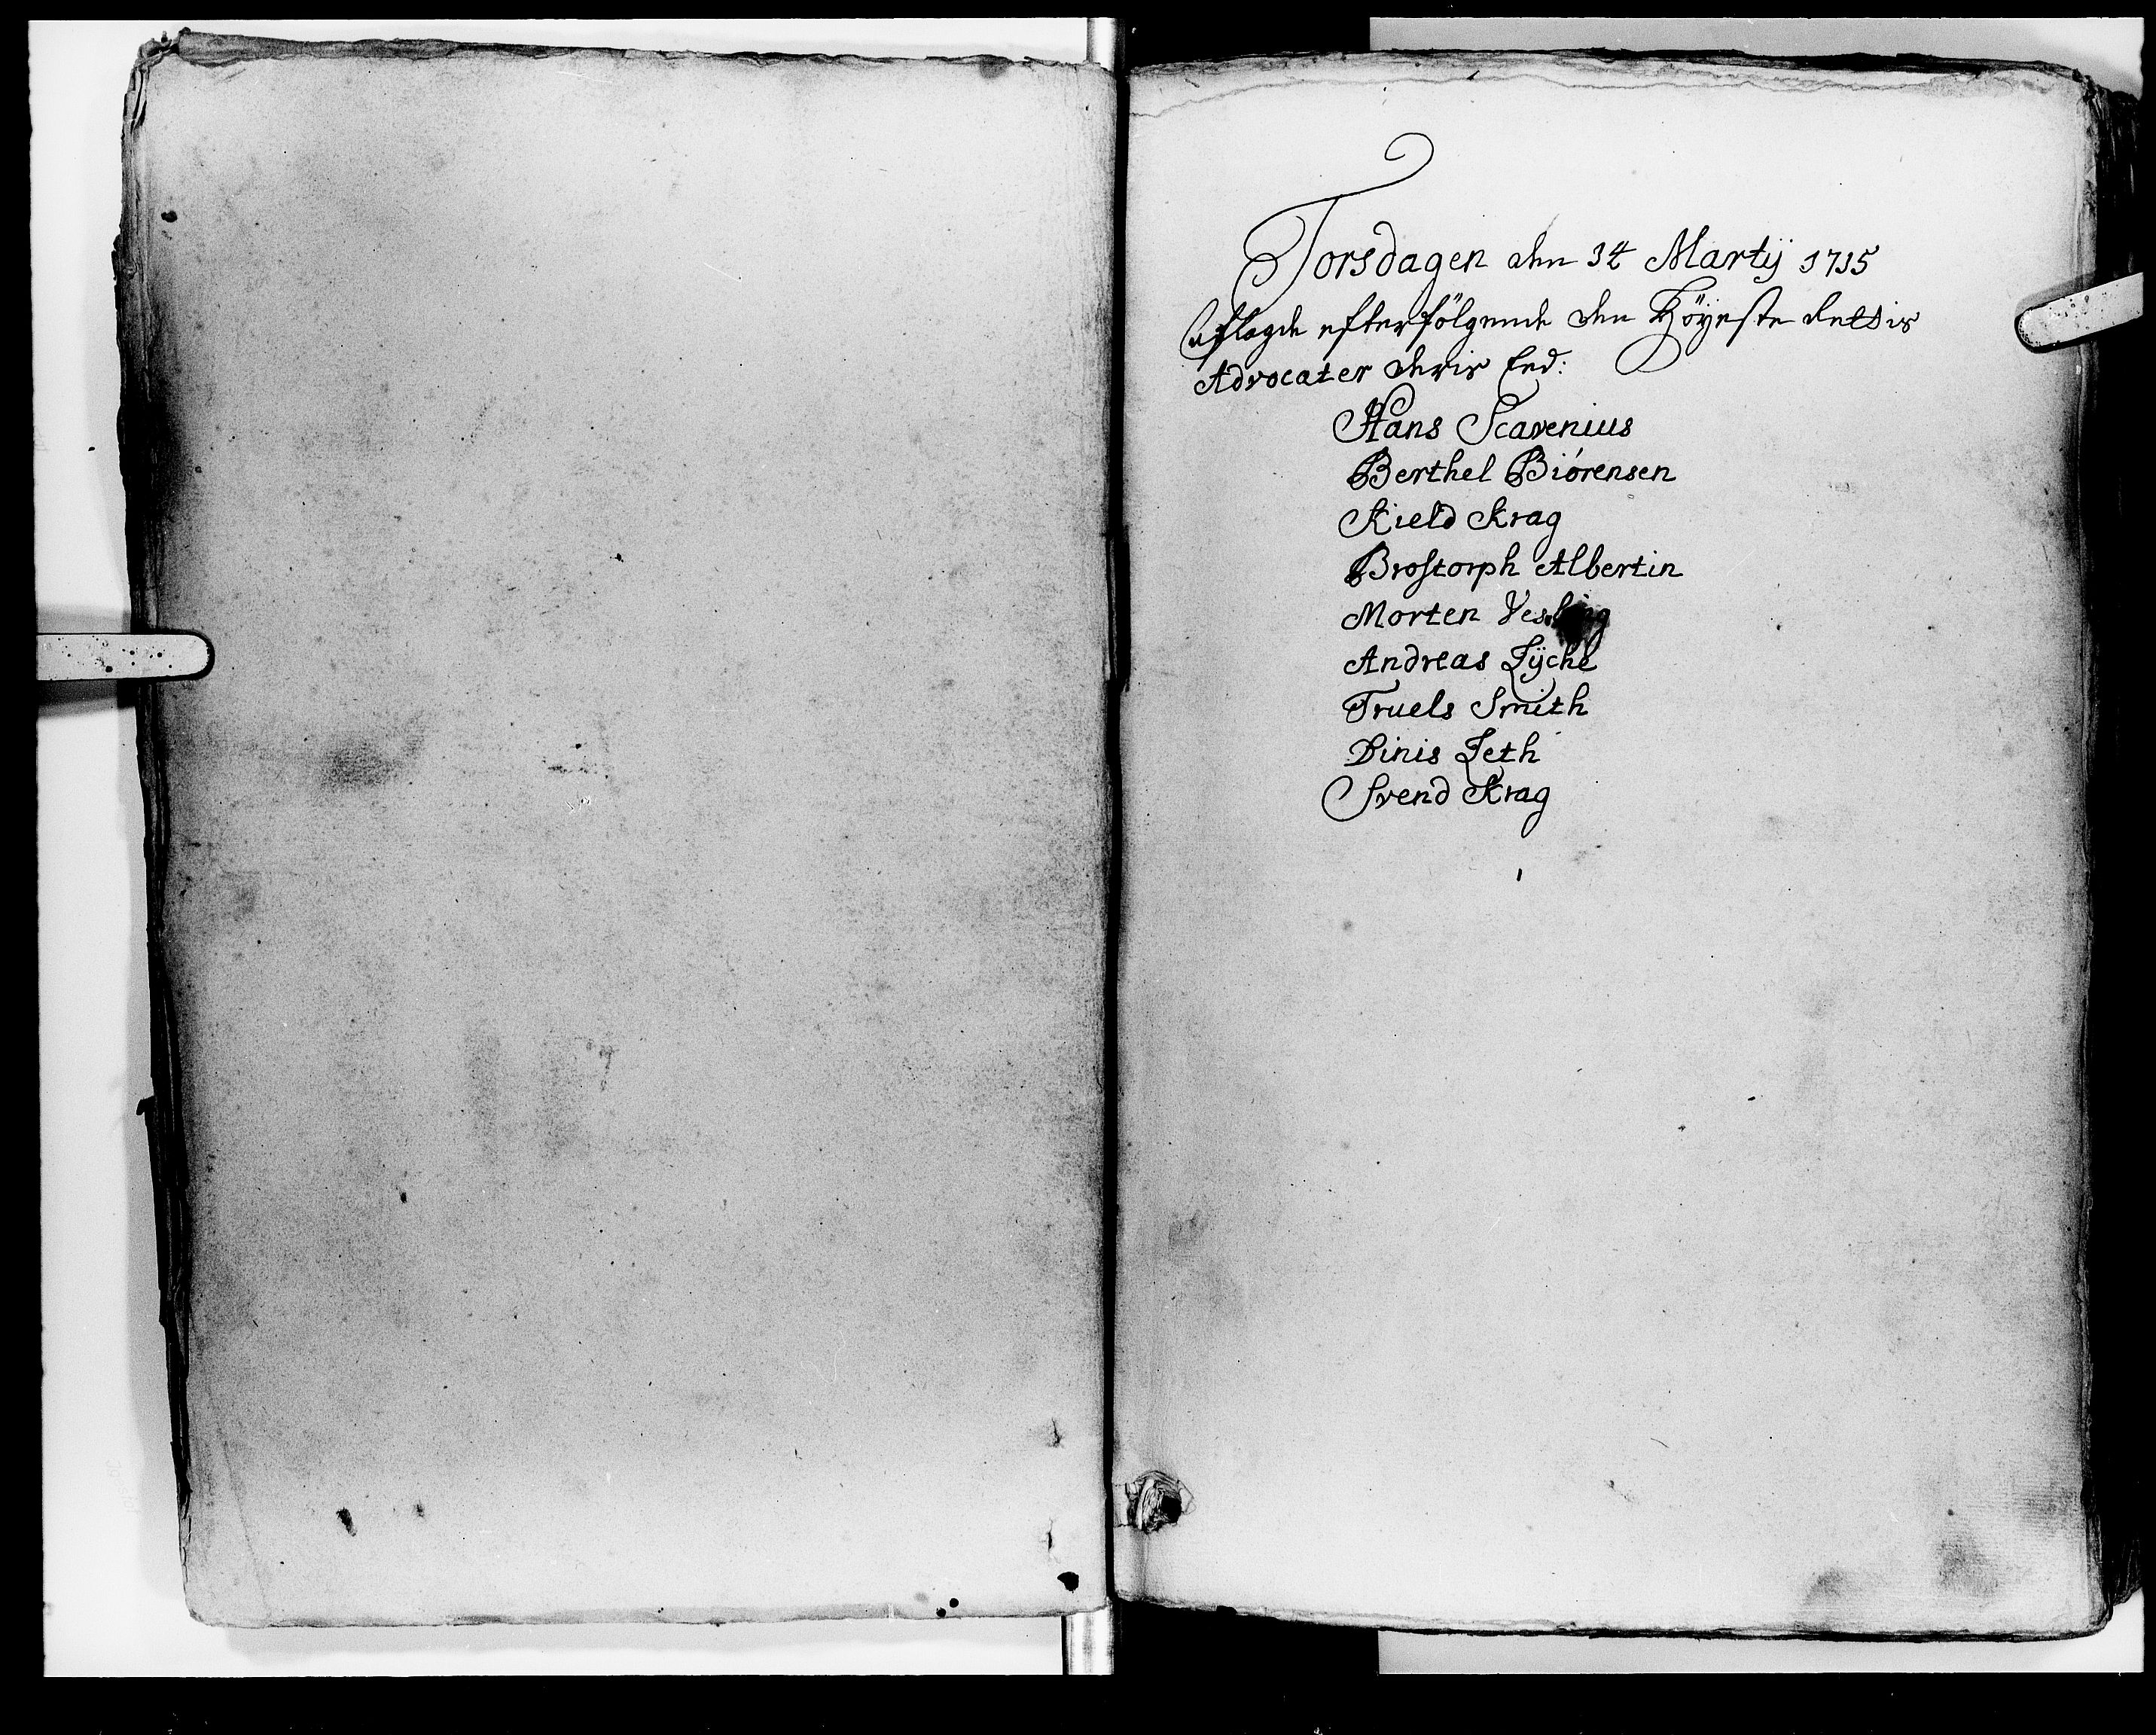 Torsdagen den 14 Martij 1715
aflagde efterfölgende den Höyeste Rettis
Advocater deris Eed:
Hans Scavenius
Berthel Biörensen
Kield Krag
Brostorph Albertin
Morten Vesling
Andreas Lyche
Truels Smith
Dinis Leth
Svend Krag